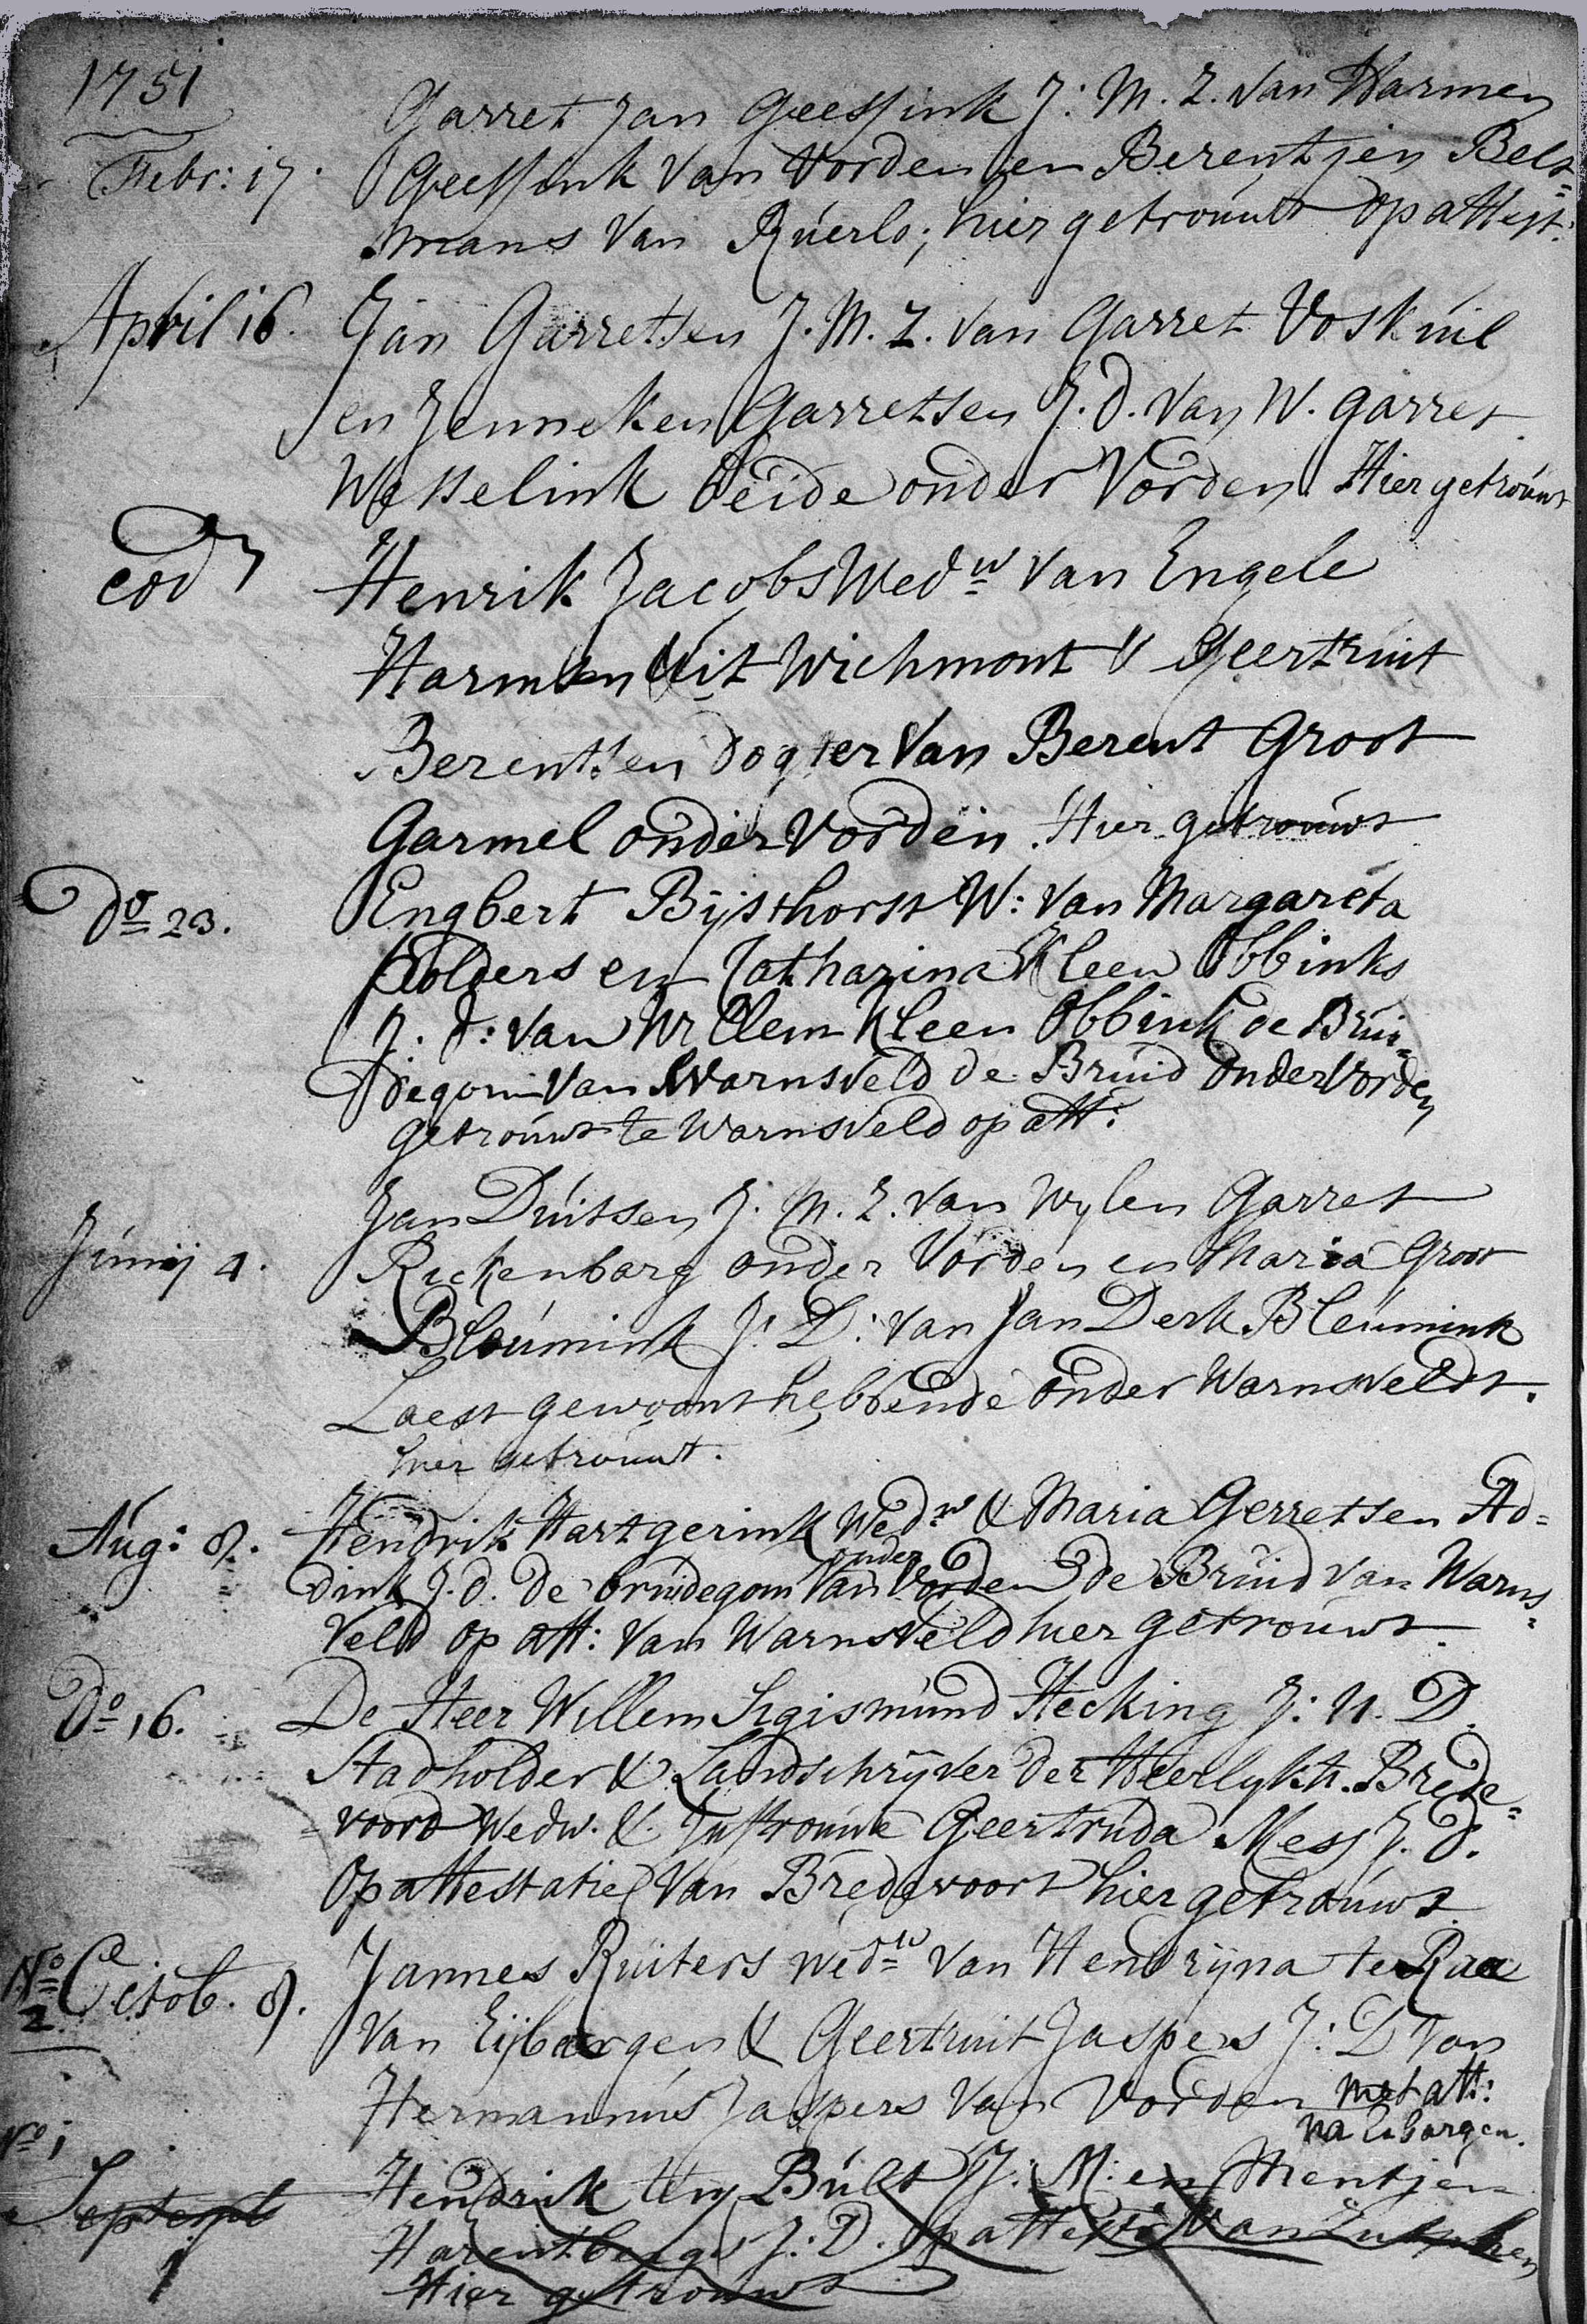 1751
Garret Jan Geessink J: M. Z. van Harmen
Febr: 17. Geessink van Vorden en Berentjen Bels=
mans van Rúerlo; hier getroúwt op attest:
April 16. Jan Garretsen J. M. Z. van Garret Voskúil
en Jenneken Garretsen J. d. van W. garret
Wesselink beide onder Vorden. Hier getroúwt
eod Henrik Jacobs Wedw van Engele
Harmsen uit Wichmont & Geertruit
Berentsen dogter van Berent Groot
Garmel onder Vorden. Hier getroúwt
do 23. Engbert Bijsthorst W: van Margareta
en Catharina Kleen Obbinks
J. d: van Willem Kleen Obbink de Brúi=
degom van Warnsveld de Brúid onder Vorden
getroúwt te Warnsveld op att:
Jan Dúitsen J. M. Z. van Wylen Garret
Júnij 4. Reckenbarg onder Vorden en Maria Groot
Bleúmink J: D: van Jan Derk Bleúmink
Laest gewoont hebbende onder Warnsveldt.
hier getroúwt.
Aúg: 8. Hendrik Hartgerink Wedw & Maria Gerretsen Ad=
onder
dink J. d. de brúidegom van Vorden de Brúid van Warns=
veld op att: van Warnsveld hier getroúwt.
Do 16. De Heer Willem Sigismúnd Hecking J: U. D.
Stadholder & Landschrijver der Heerlykh. Brede=
voord Wedw. & Juffrouwe Geertrúda Mess J. d.
op attestatie van Bredevoort hier getroúwt
No 2 Octob. 8. Jannes Rúiters wedw van Hendrijna te Raa
van Eijbargen & Geertruit Jaspers J: D van
Hermannús Jaspers van Vorden met att:
na Eibargen.
No 1
Septemb Hendrik ten Búlt J: M: en Hentjen
1 Harentbergs J: D. op attest: van Zutphen
Hier getroúwt